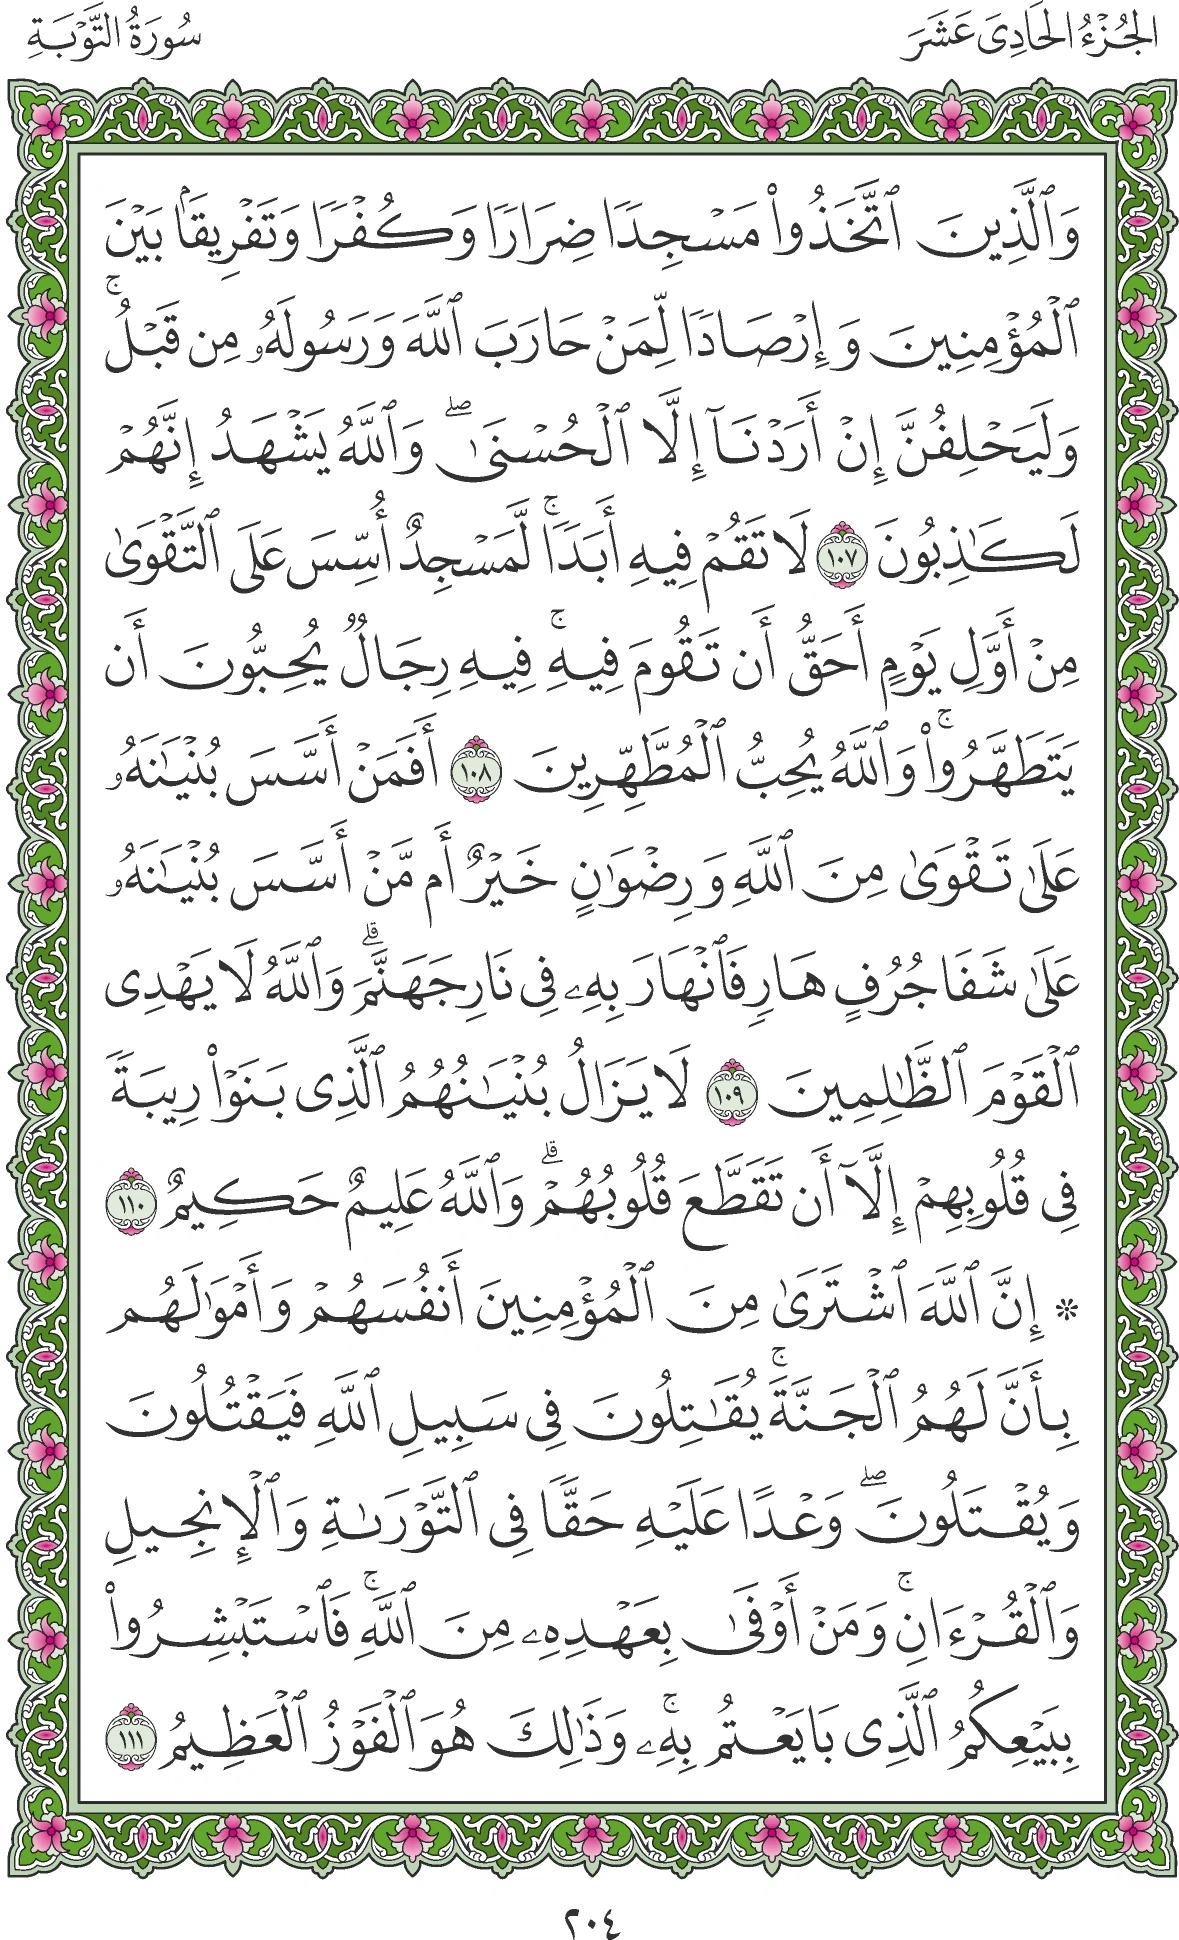 الجُزْءُ الحَادِىَ عَشَرَ
سُورَةُ التَّوۡبَةِ
وَٱلَّذِينَ ٱتَّخَذُواْ مَسۡجِدٗا ضِرَارٗا وَكُفۡرٗا وَتَفۡرِيقَۢا بَيۡنَ
ٱلۡمُؤۡمِنِينَ وَإِرۡصَادٗا لِّمَنۡ حَارَبَ ٱللَّهَ وَرَسُولَهُۥ مِن قَبۡلُۚ
وَلَيَحۡلِفُنَّ إِنۡ أَرَدۡنَآ إِلَّا ٱلۡحُسۡنَىٰۖ وَٱللَّهُ يَشۡهَدُ إِنَّهُمۡ
لَكَٰذِبُونَ ١٠٧ لَا تَقُمۡ فِيهِ أَبَدٗاۚ لَّمَسۡجِدٌ أُسِّسَ عَلَى ٱلتَّقۡوَىٰ
مِنۡ أَوَّلِ يَوۡمٍ أَحَقُّ أَن تَقُومَ فِيهِۚ فِيهِ رِجَالٞ يُحِبُّونَ أَن
يَتَطَهَّرُواْۚ وَٱللَّهُ يُحِبُّ ٱلۡمُطَّهِّرِينَ ١٠٨ أَفَمَنۡ أَسَّسَ بُنۡيَٰنَهُۥ
عَلَىٰ تَقۡوَىٰ مِنَ ٱللَّهِ وَرِضۡوَٰنٍ خَيۡرٌ أَم مَّنۡ أَسَّسَ بُنۡيَٰنَهُۥ
عَلَىٰ شَفَا جُرُفٍ هَارٖ فَٱنۡهَارَ بِهِۦ فِي نَارِ جَهَنَّمَۗ وَٱللَّهُ لَا يَهۡدِي
ٱلۡقَوۡمَ ٱلظَّٰلِمِينَ ١٠٩ لَا يَزَالُ بُنۡيَٰنُهُمُ ٱلَّذِي بَنَوۡاْ رِيبَةٗ
فِي قُلُوبِهِمۡ إِلَّآ أَن تَقَطَّعَ قُلُوبُهُمۡۗ وَٱللَّهُ عَلِيمٌ حَكِيمٌ ١١٠
۞ إِنَّ ٱللَّهَ ٱشۡتَرَىٰ مِنَ ٱلۡمُؤۡمِنِينَ أَنفُسَهُمۡ وَأَمۡوَٰلَهُم
بِأَنَّ لَهُمُ ٱلۡجَنَّةَۚ يُقَٰتِلُونَ فِي سَبِيلِ ٱللَّهِ فَيَقۡتُلُونَ
وَيُقۡتَلُونَۖ وَعۡدًا عَلَيۡهِ حَقّٗا فِي ٱلتَّوۡرَىٰةِ وَٱلۡإِنجِيلِ
وَٱلۡقُرۡءَانِۚ وَمَنۡ أَوۡفَىٰ بِعَهۡدِهِۦ مِنَ ٱللَّهِۚ فَٱسۡتَبۡشِرُواْ
بِبَيۡعِكُمُ ٱلَّذِي بَايَعۡتُم بِهِۦۚ وَذَٰلِكَ هُوَ ٱلۡفَوۡزُ ٱلۡعَظِيمُ ١١١
٢٠٤